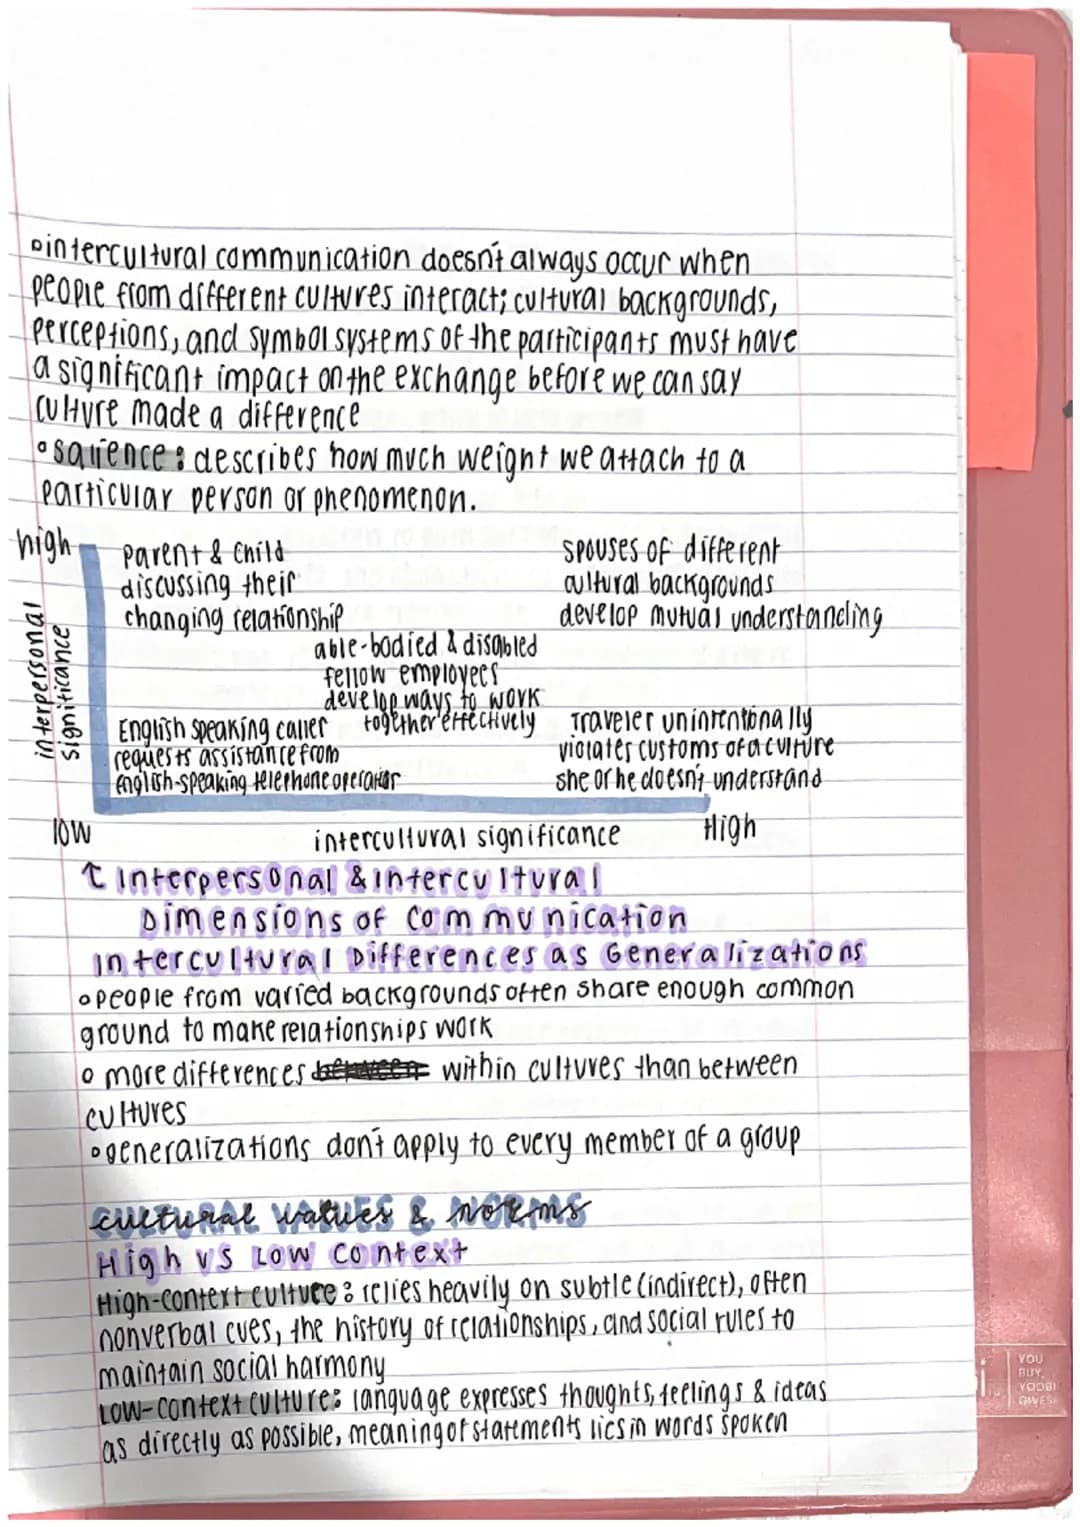 intercultural communication doesn't always occur when
people from different cultures interact; cultural backgrounds,
perceptions, and symbol systems of the participants must have
a significant impact on the exchange before we can say
culture made a difference
salience: describes how much weight we attach to a
particular person or phenomenon.
high
interpersonal
significance
parent & child
discussing their
changing relationship
spouses of different
cultural backgrounds
develop mutual understanding
able-bodied & disabled
fellow employees
develop ways to work
together effectively
English speaking caller
requests assistance from
english-speaking telephone operator
Traveler unintentionally
violates customs of a culture
she or he doesn't understand
low
intercultural significance
High
↑ Interpersonal & intercultural
Dimensions of Communication
Intercultural Differences as Generalizations
people from varied backgrounds often share enough common
ground to make relationships work
more differences between within cultures than between
cultures
generalizations don't apply to every member of a group
CULTURAL VALUES & NORMS
cultural values & norms
High vs Low context
High-context culture: relies heavily on subtle (indirect), often
nonverbal cues, the history of relationships, and social rules to
maintain social harmony
Low-context culture: language expresses thoughts, feelings & ideas
as directly as possible, meaning of statements lies in words spoken
YOU
BUY,
YOOBI
GIVES!